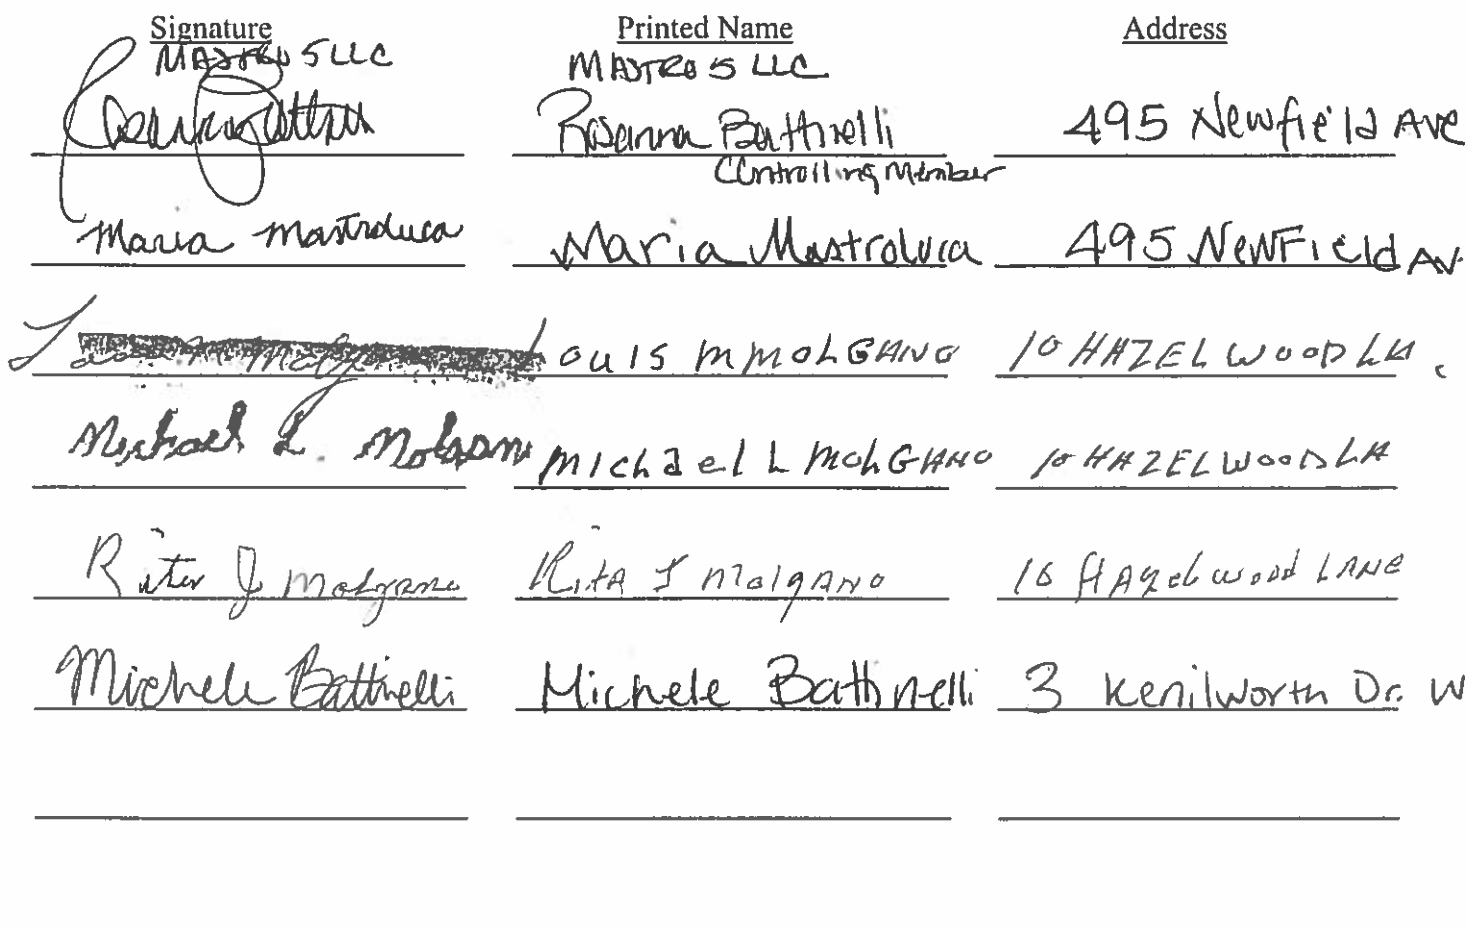 Signature Printed Name Address
MASTRO 5 LLC MASTRO 5 LLC
Rosanna Battinelli 495 Newfield Ave
Controlling Member
Maria Mastroluca Maria Mastroluca 495 NewField Av.
Louis M MOLGANO 10 HAZELWOOD LN.
Michael L. Molgano Michael L MOLGANO 10 HAZELWOOD LN
Rita J Molgano Rita J MolgANO 10 HAzelwood LANE
Michele Battinelli Michele Battinelli 3 Kenilworth Dr. W